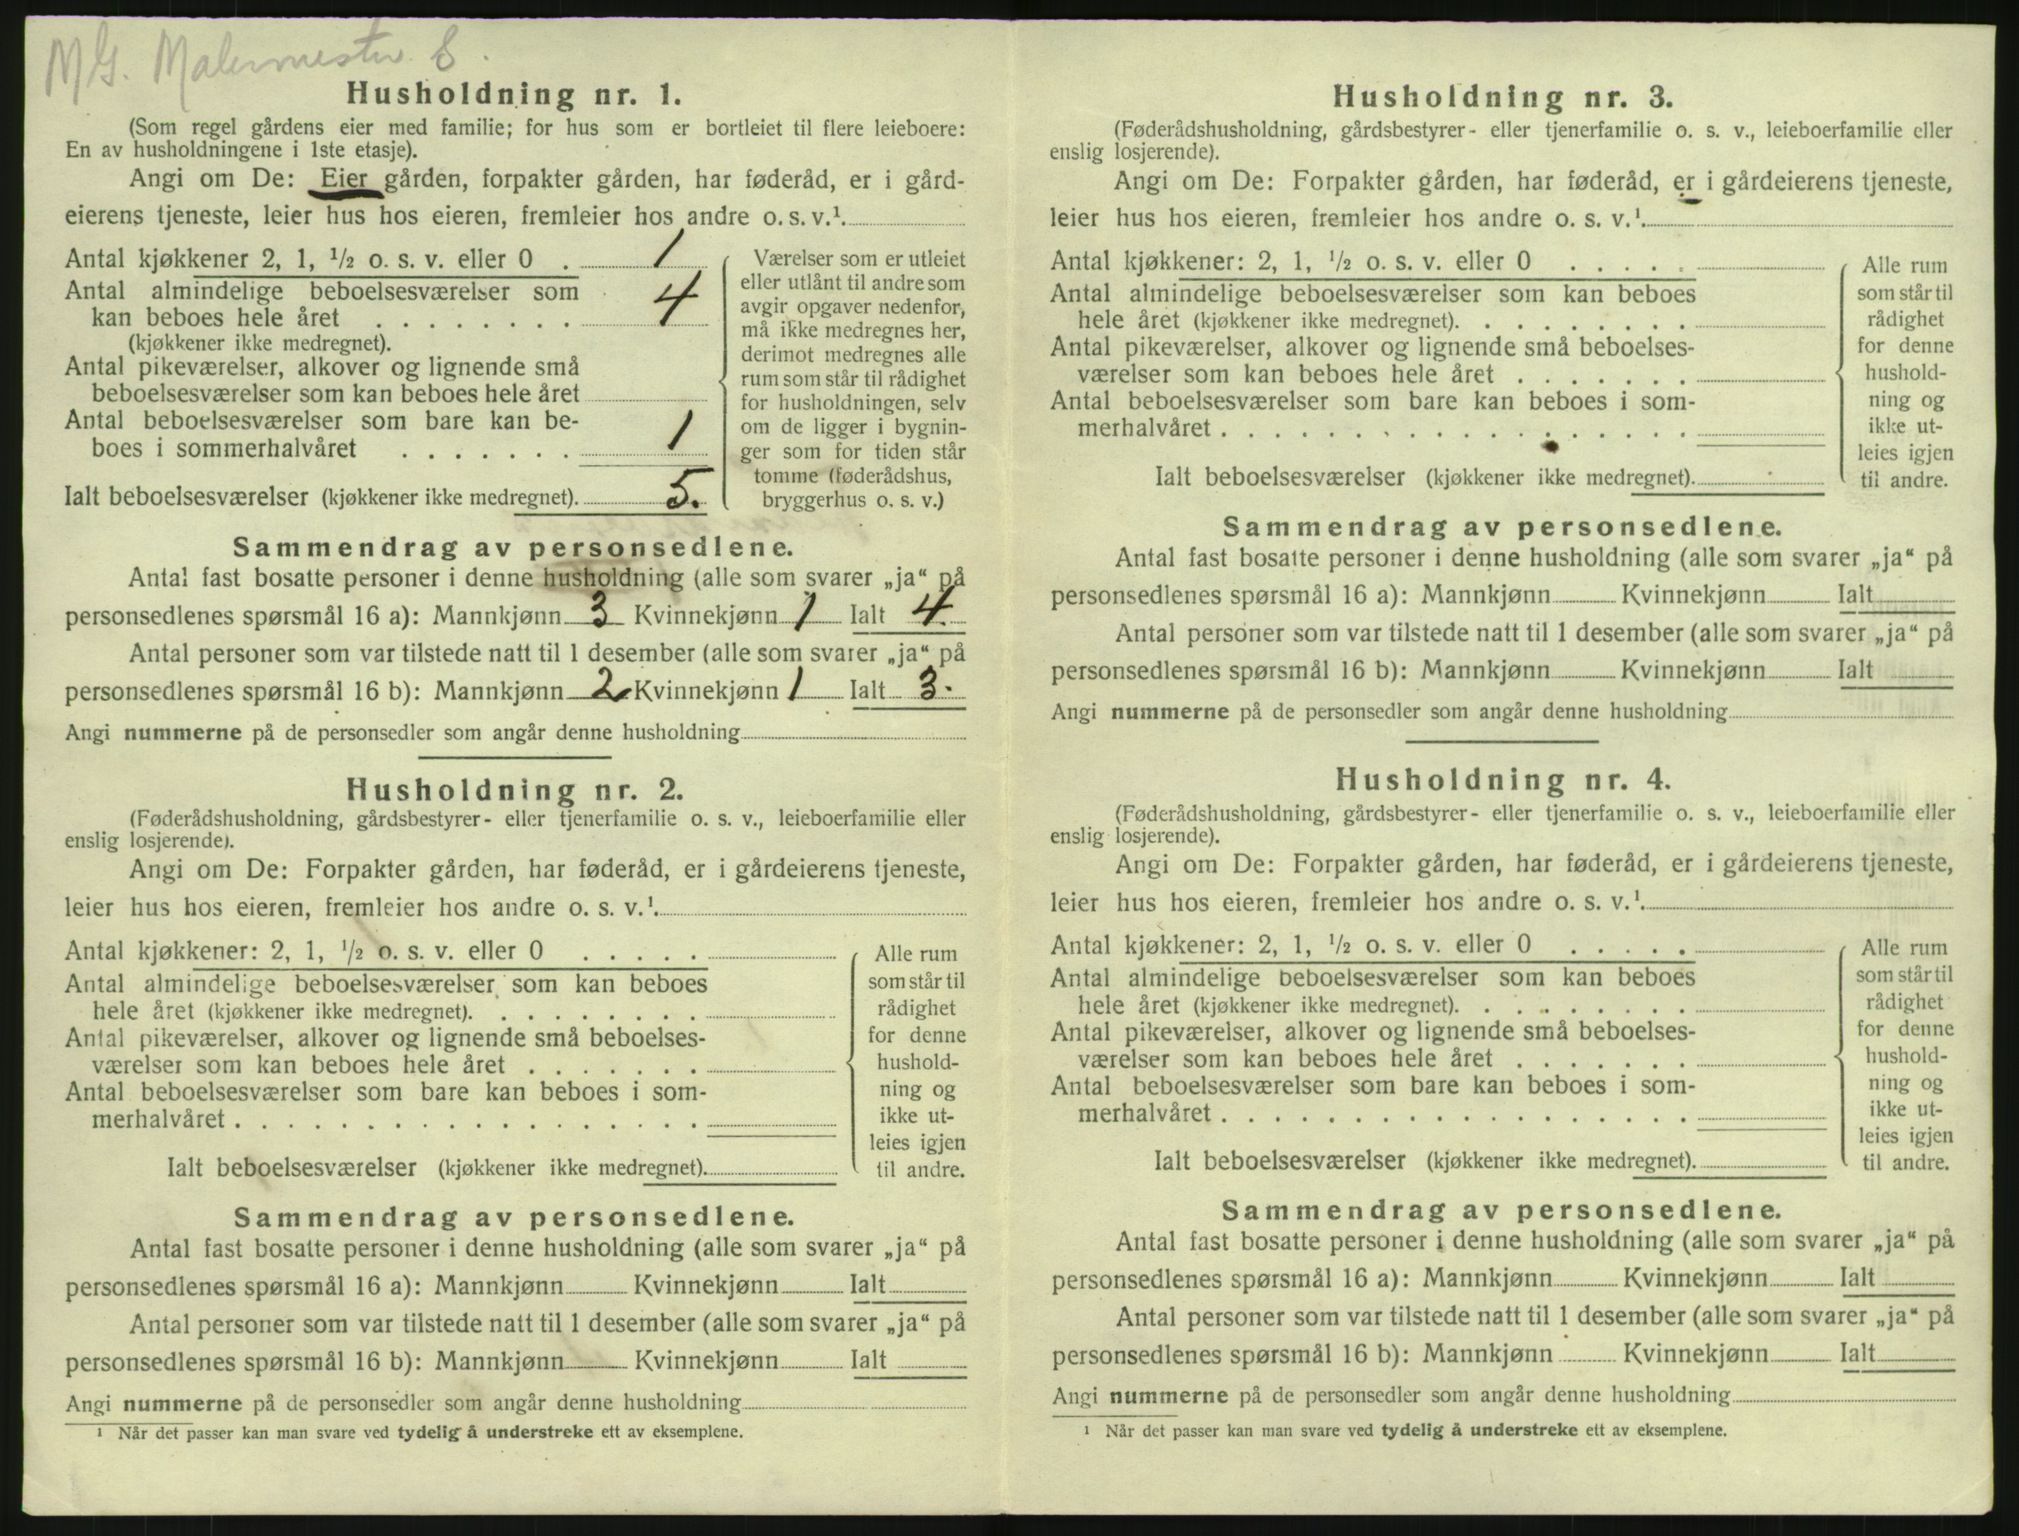 MG. Malermester E.
Husholdning nr. 1.
(Som regel gårdens eier med familie; for hus som er bortleiet til flere leieboere:
En av husholdningene i 1ste etasje).
Angi om De: Eier gården, forpakter gården, har føderåd, er i gård-
eierens tjeneste, leier hus hos eieren, fremleier hos andre o. s. v.¹
Antal kjøkkener 2, 1, ½ o. s. v. eller 0 . 1
Antal almindelige beboelsesværelser som
kan beboes hele året . . . . . . . . 4
(kjøkkener ikke medregnet).
Antal pikeværelser, alkover og lignende små
beboelsesværelser som kan beboes hele året
Antal beboelsesværelser som bare kan be-
boes i sommerhalvåret . . . . . . . 1
Ialt beboelsesværelser (kjøkkener ikke medregnet). 5.
Værelser som er utleiet
eller utlånt til andre som
avgir opgaver nedenfor,
må ikke medregnes her,
derimot medregnes alle
rum som står til rådighet
for husholdningen, selv
om de ligger i bygnin-
ger som for tiden står
tomme (føderådshus,
bryggerhus o. s. v.)
Sammendrag av personsedlene.
Antal fast bosatte personer i denne husholdning (alle som svarer „ja“ på
personsedlenes spørsmål 16 a): Mannkjønn 3 Kvinnekjønn 1 Ialt 4
Antal personer som var tilstede natt til 1 desember (alle som svarer „ja“ på
personsedlenes spørsmål 16 b): Mannkjønn 2 Kvinnekjønn 1 Ialt 3.
Angi nummerne på de personsedler som angår denne husholdning
Husholdning nr. 2.
(Føderådshusholdning, gårdsbestyrer- eller tjenerfamilie o. s. v., leieboerfamilie eller
enslig losjerende).
Angi om De: Forpakter gården, har føderåd, er i gårdeierens tjeneste,
leier hus hos eieren, fremleier hos andre o. s. v.¹.
Antal kjøkkener: 2, 1, ½ o. s. v. eller 0 . . . . .
Antal almindelige beboelsesværelser som kan beboes
hele året (kjøkkener ikke medregnet). . . . . . . . .
Antal pikeværelser, alkover og lignende små beboelses-
værelser som kan beboes hele året . . . . . . .
Antal beboelsesværelser som bare kan beboes i som-
merhalvåret . . . . . . . . . . . . . . . . . .
Ialt beboelsesværelser (kjøkkener ikke medregnet).
Alle rum
som står til
rådighet
for denne
hushold-
ning og
ikke ut-
leies igjen
til andre.
Sammendrag av personsedlene.
Antal fast bosatte personer i denne husholdning (alle som svarer „ja“ på
personsedlenes spørsmål 16 a): Mannkjønn Kvinnekjønn Ialt
Antal personer som var tilstede natt til 1 desember (alle som svarer „ja“ på
personsedlenes spørsmål 16 b): Mannkjønn Kvinnekjønn Ialt
Angi nummerne på de personsedler som angår denne husholdning
¹ Når det passer kan man svare ved tydelig å understreke ett av eksemplene.
Husholdning nr. 3.
(Føderådshusholdning, gårdsbestyrer- eller tjenerfamilie o. s. v., leieboerfamilie eller
enslig losjerende).
Angi om De: Forpakter gården, har føderåd, er i gårdeierens tjeneste,
leier hus hos eieren, fremleier hos andre o. s. v.¹.
Antal kjøkkener: 2, 1, ½ o. s. v. eller 0 . . . . .
Antal almindelige beboelsesværelser som kan beboes
hele året (kjøkkener ikke medregnet). . . . . . . . .
Antal pikeværelser, alkover og lignende små beboelses-
værelser som kan beboes hele året . . . . . . .
Antal beboelsesværelser som bare kan beboes i som-
merhalvåret . . . . . . . . . . . . . . . . . .
Ialt beboelsesværelser (kjøkkener ikke medregnet).
Alle rum
som står til
rådighet
for denne
hushold-
ning og
ikke ut-
leies igjen
til andre.
Sammendrag av personsedlene.
Antal fast bosatte personer i denne husholdning (alle som svarer „ja“ på
personsedlenes spørsmål 16 a): Mannkjønn Kvinnekjønn Ialt
Antal personer som var tilstede natt til 1 desember (alle som svarer „ja“ på
personsedlenes spørsmål 16 b): Mannkjønn Kvinnekjønn Ialt
Angi nummerne på de personsedler som angår denne husholdning
Husholdning nr. 4.
(Føderådshusholdning, gårdsbestyrer- eller tjenerfamilie o. s. v., leieboerfamilie eller
enslig losjerende).
Angi om De: Forpakter gården, har føderåd, er i gårdeierens tjeneste,
leier hus hos eieren, fremleier hos andre o. s. v.¹.
Antal kjøkkener: 2, 1, ½ o. s. v. eller 0 . . . . .
Antal almindelige beboelsesværelser som kan beboes
hele året (kjøkkener ikke medregnet). . . . . . . . .
Antal pikeværelser, alkover og lignende små beboelses-
værelser som kan beboes hele året . . . . . . .
Antal beboelsesværelser som bare kan beboes i som-
merhalvåret . . . . . . . . . . . . . . . . . .
Ialt beboelsesværelser (kjøkkener ikke medregnet).
Alle rum
som står til
rådighet
for denne
hushold-
ning og
ikke ut-
leies igjen
til andre.
Sammendrag av personsedlene.
Antal fast bosatte personer i denne husholdning (alle som svarer „ja“ på
personsedlenes spørsmål 16 a): Mannkjønn Kvinnekjønn Ialt
Antal personer som var tilstede natt til 1 desember (alle som svarer „ja“ på
personsedlenes spørsmål 16 b): Mannkjønn Kvinnekjønn Ialt
Angi nummerne på de personsedler som angår denne husholdning
¹ Når det passer kan man svare ved tydelig å understreke ett av eksemplene.